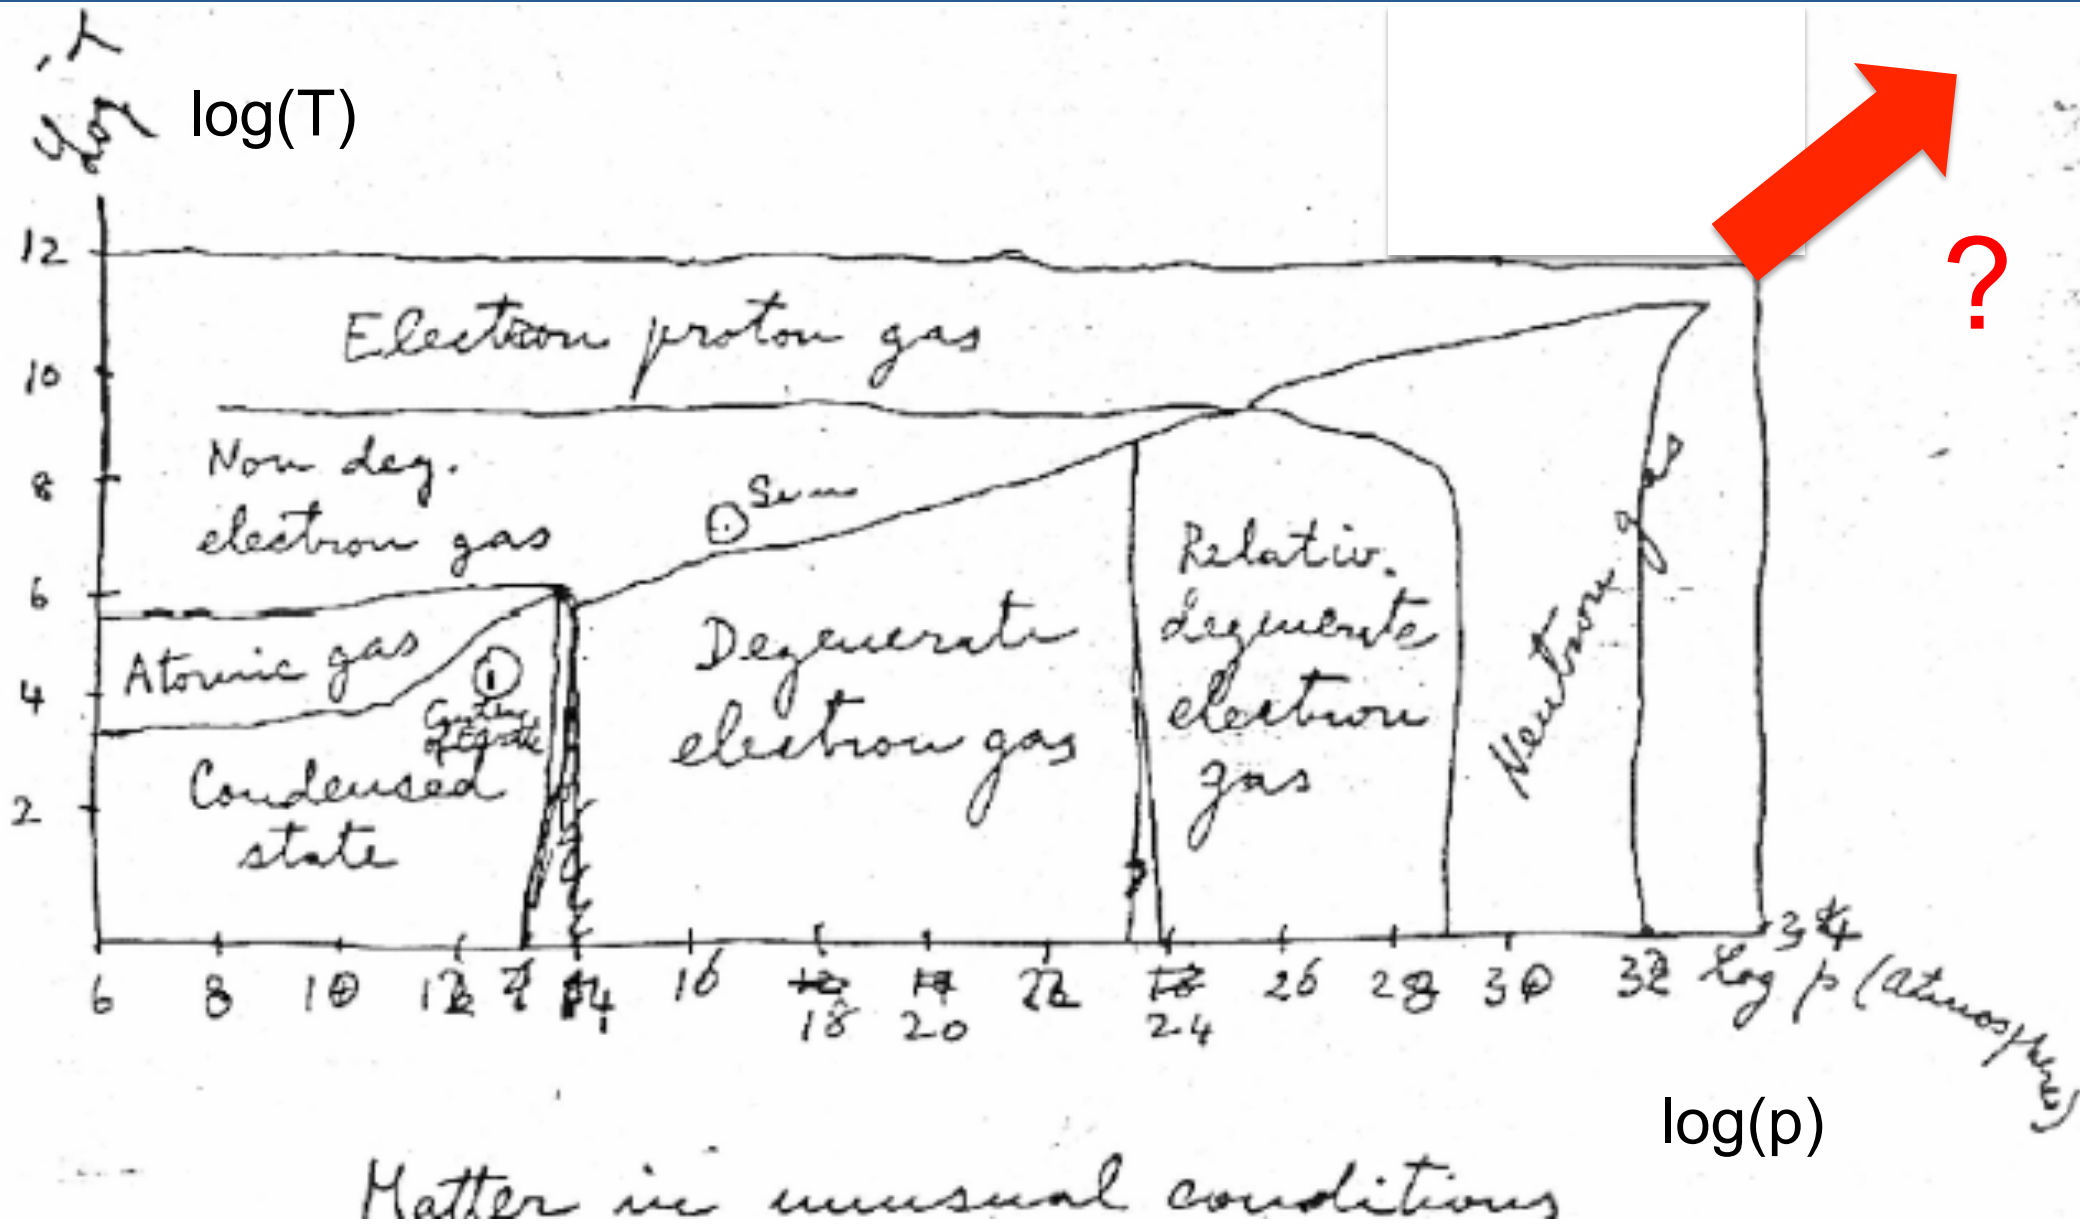 Log T
log(T)
?
12
10
8
6
4
2
Electron proton gas
Non deg.
electron gas
Sun
Atomic gas
Condensed
state
Degenerate
electron gas
Relativ.
degenerate
electron
gas
Neutron gas
6 8 10 12 14 16 18 20 22 24 26 28 30 32 34
Log p (atmospheres)
log(p)
Matter in unusual conditions